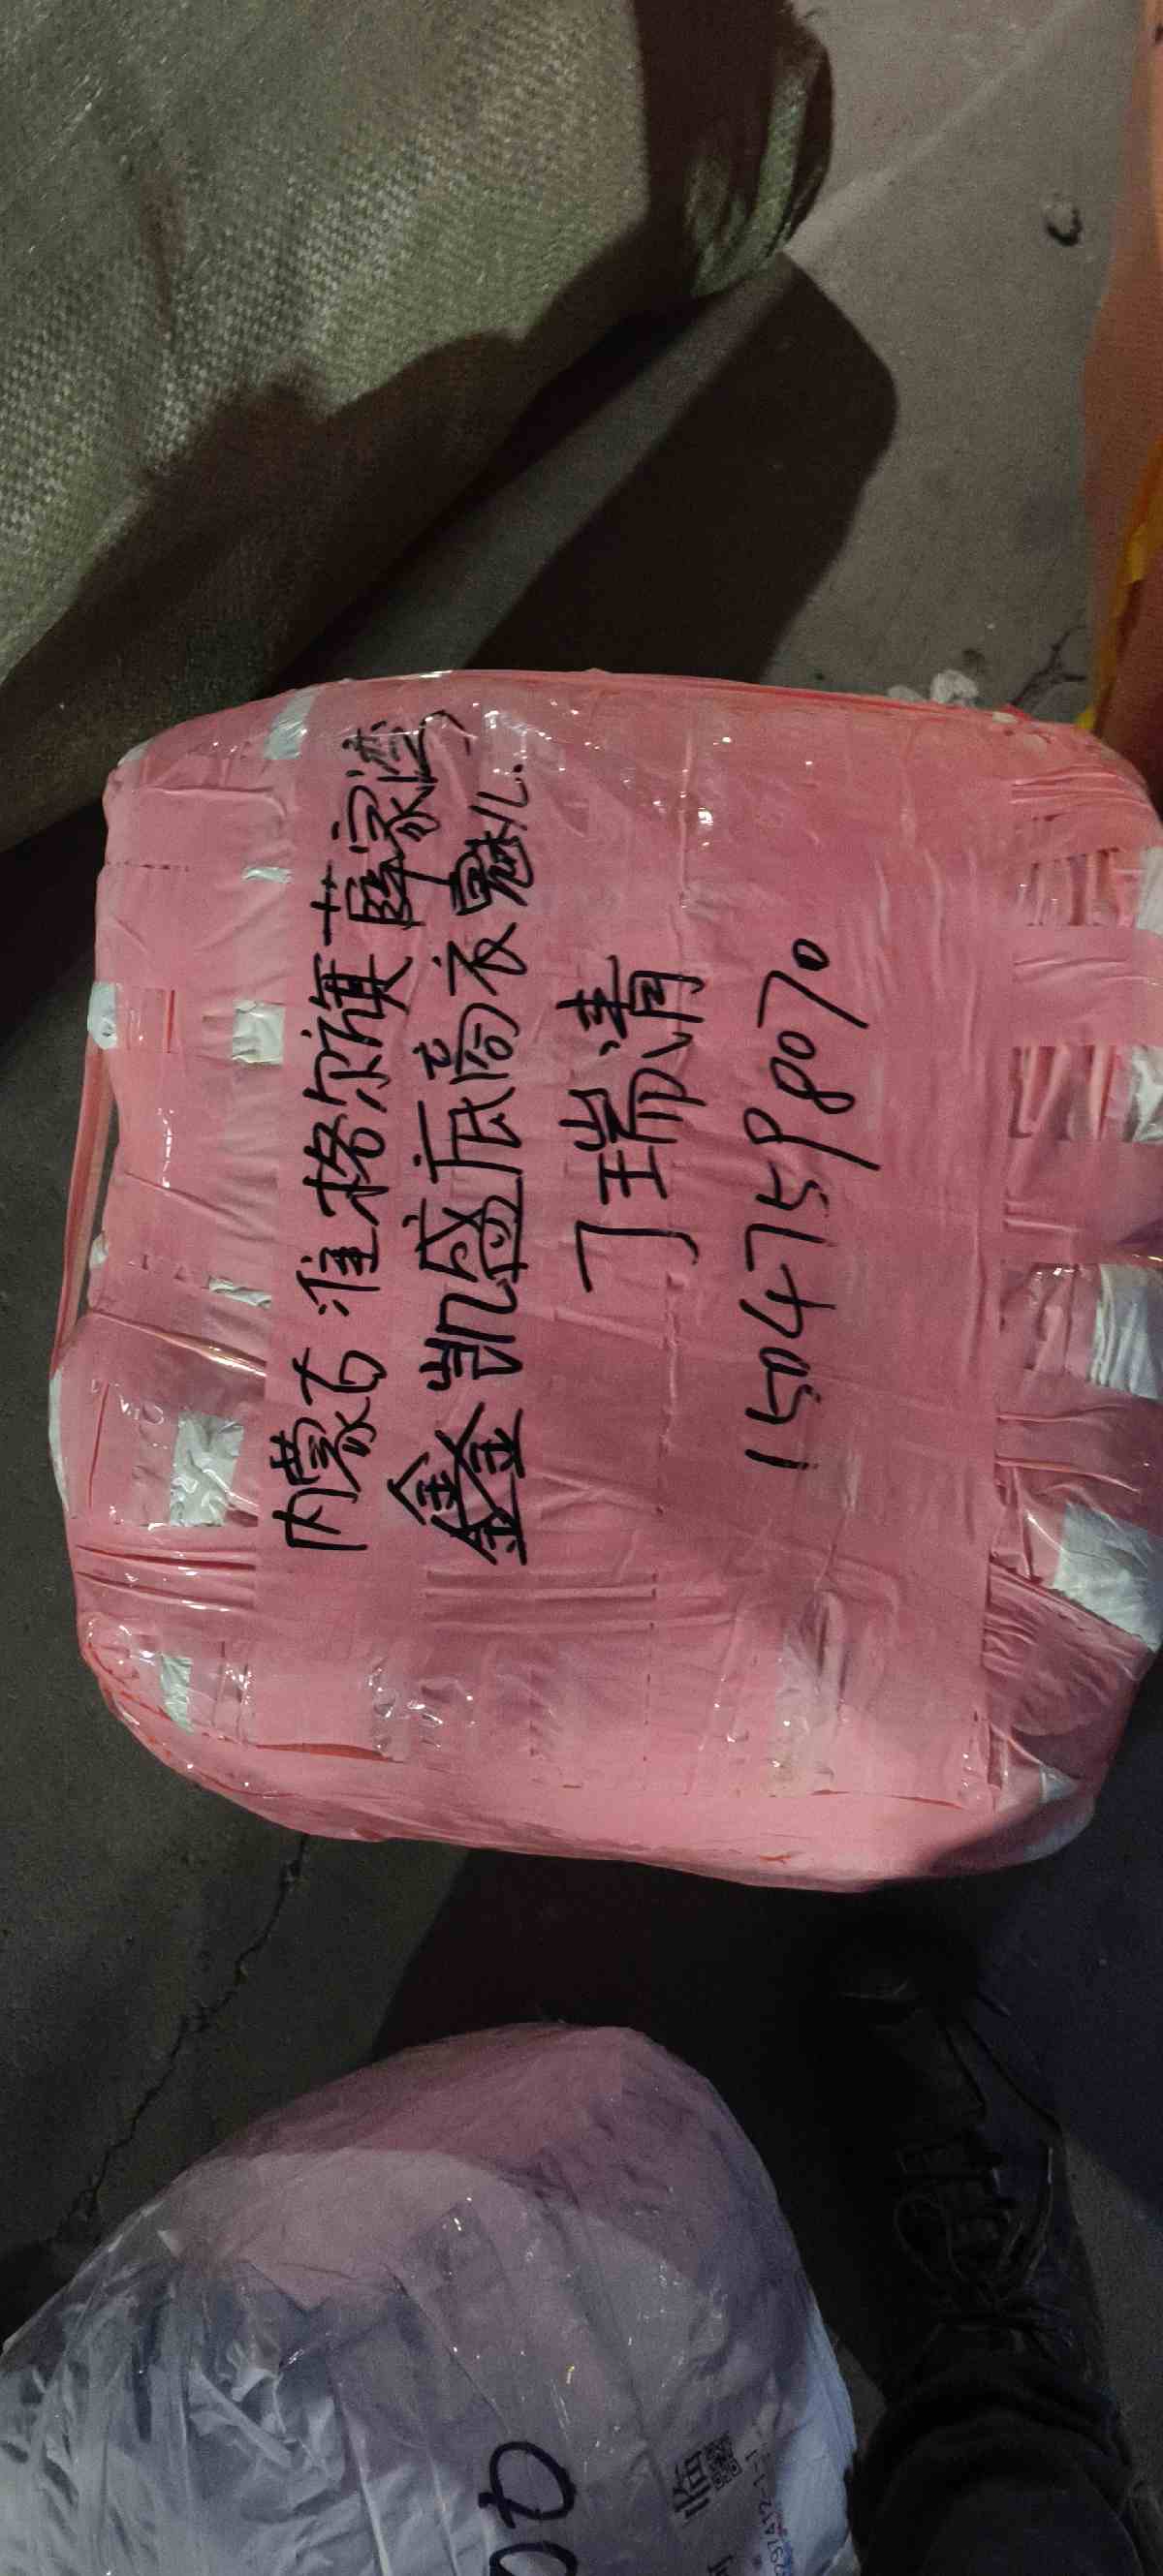 内蒙古准格尔旗薛家湾
鑫凯盛底商衣魅儿.
丁瑞清
15047598070